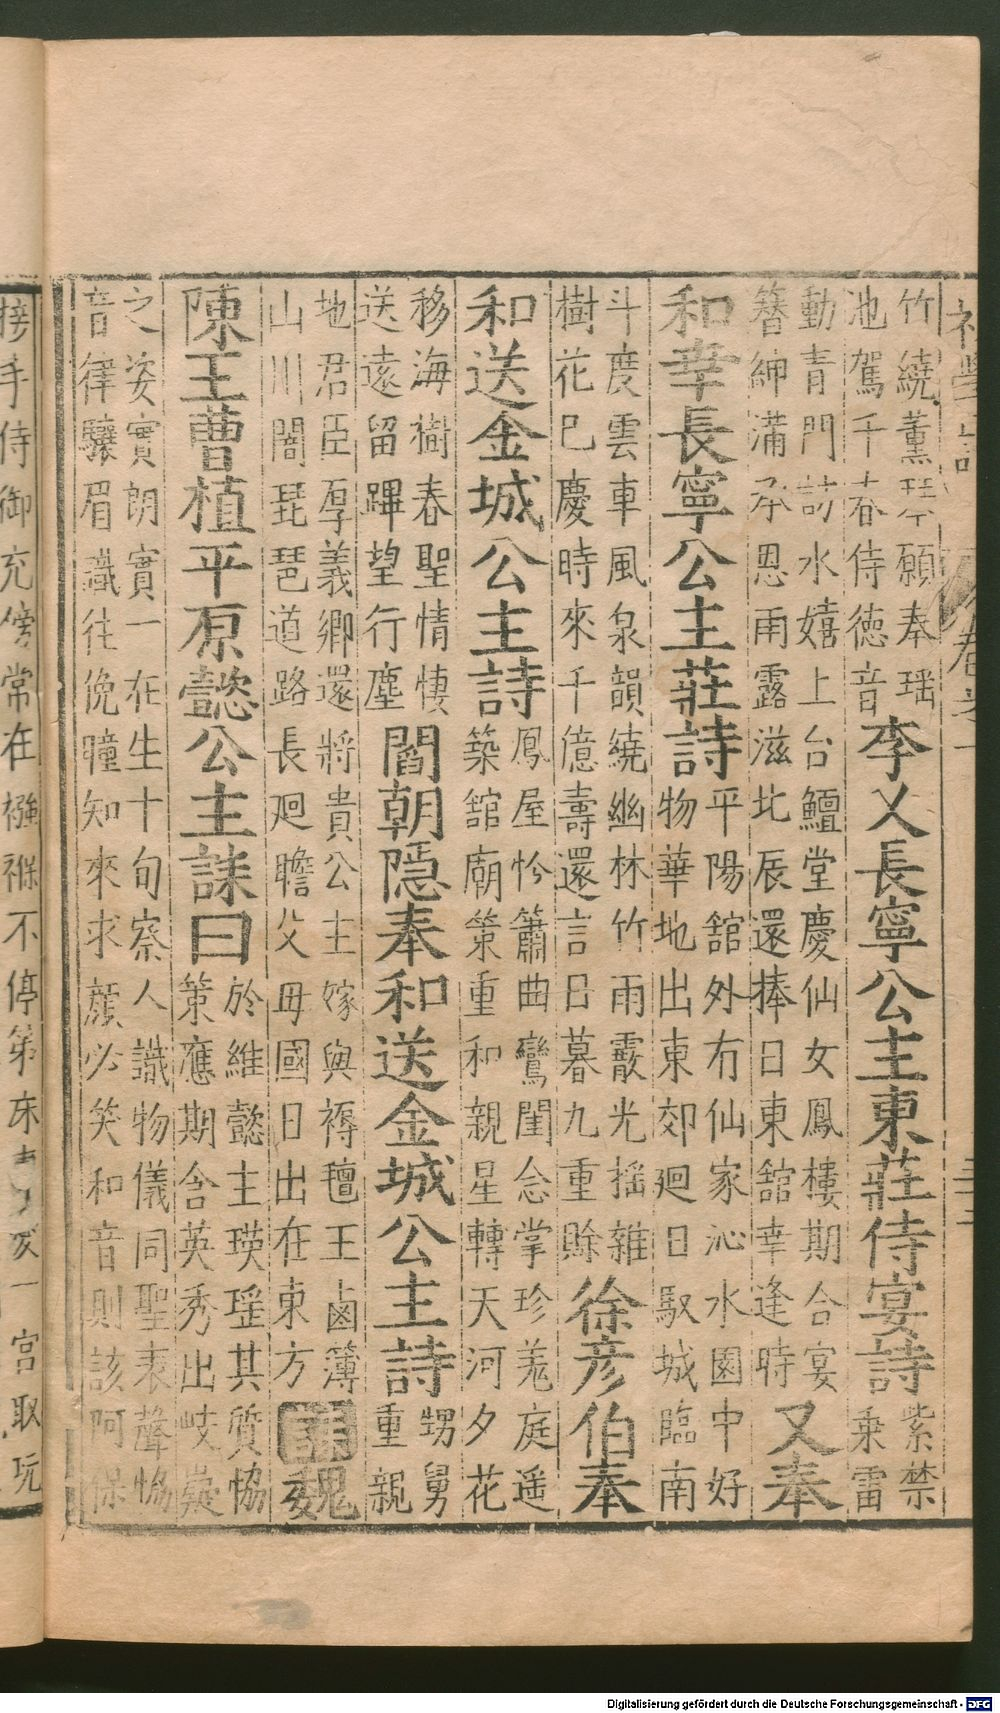 竹繞薰琴願奉瑶
池駕千春侍德音
李乂長寧公主東莊侍宴詩
紫禁
乗雷
動青門訪水嬉上台鱣堂慶仙女鳳樓期合宴
簪紳滿承恩雨露滋北辰還捧日東舘幸逢時
又奉
和幸長寧公主莊詩
平陽舘外有仙家沁水園中好
物華地出東郊廻日馭城臨南
斗度雲車風泉韻繞幽林竹雨霰光揺雜
樹花已慶時來千億壽還言日暮九重賒
徐彦伯奉
和送金城公主詩
鳳屋怜簫曲鸞閨念掌珍羗庭遥
築舘廟策重和親星轉天河夕花
移海樹春聖情悽
送遠留蹕望行塵
閻朝隠奉和送金城公主詩
甥舅
重親
地君臣厚義卿還將貴公主嫁與褥氊王鹵簿
山川闇琵琶道路長廻瞻父母國日出在東方
誄
魏
陳王曹植平原懿公主誄曰
於維懿主瑛瑶其質協
策應期含英秀出岐嶷
之姿實朗實一在生十旬察人識物儀同聖表聲協
音律驤眉識往俛瞳知來求顔必笑和音則該阿保
接手侍御充傍常在襁褓不停第床
一宫取玩
Digitalisierung gefördert durch die Deutsche Forschungsgemeinschaft - DFG